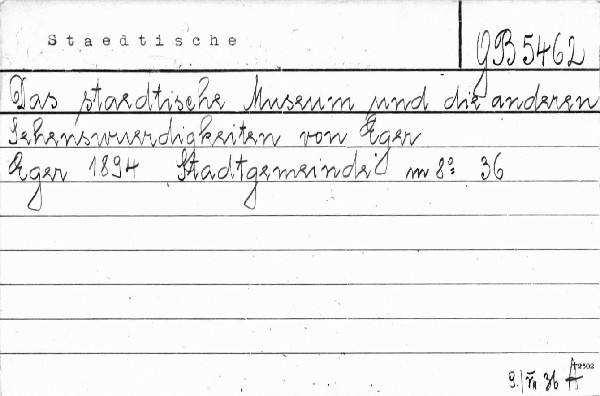 Staedtische
GB 5462
Das staedtische Museum und die anderen
Sehenswuerdigkeiten von Eger
Eger 1894 Stadtgemeinde m 8° 36
9./VII 36 A 2502